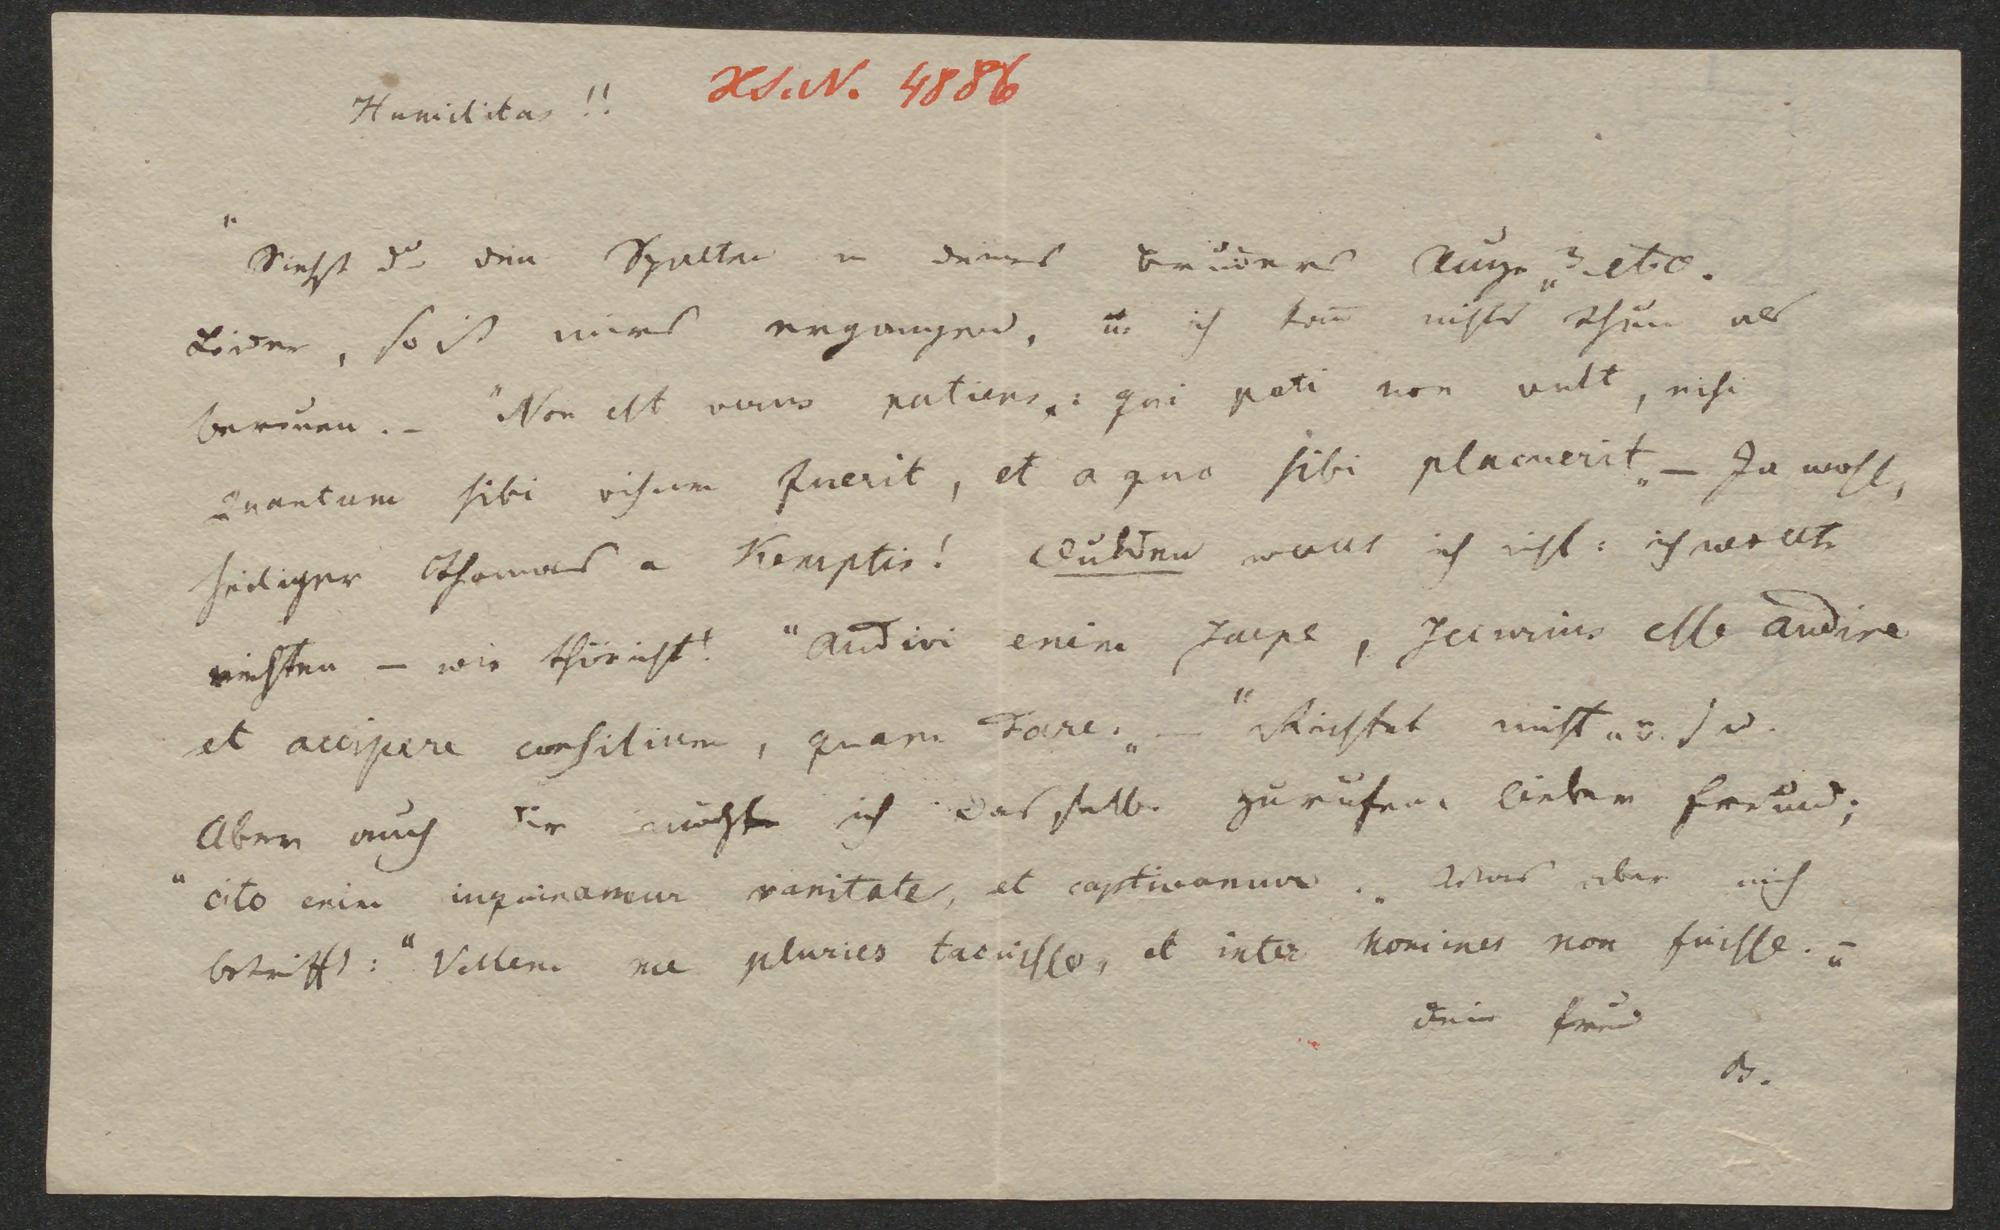 Humilitas!!
Hs. N. 4886
"Siehst du den Splitter in deines Bruders Auge"? etc.
Leider, so ist mirs ergangen, u. ich kann nichts thun als
bereuen. – "Non est verus patiens: qui pati non vult, nisi
quantum sibi visum fuerit, et a quo sibi placuerit" – Ja wohl,
heiliger Thomas a Kempis! Dulden ich nicht: ich wollte
richten – wie thöricht! "Audivi enim saepe, securius esse audire
et accipere consilium, quam dare." – "Richtet nicht" u. s. w.
Aber auch dir möchte ich dasselbe zurufen, lieber Freund;
"cito enim inquinamur vanitate, et captivamur." Was aber mich
betrifft: "Vellem me pluries tacuisse, et inter homines non fuisse." –
Dein Freund
B.